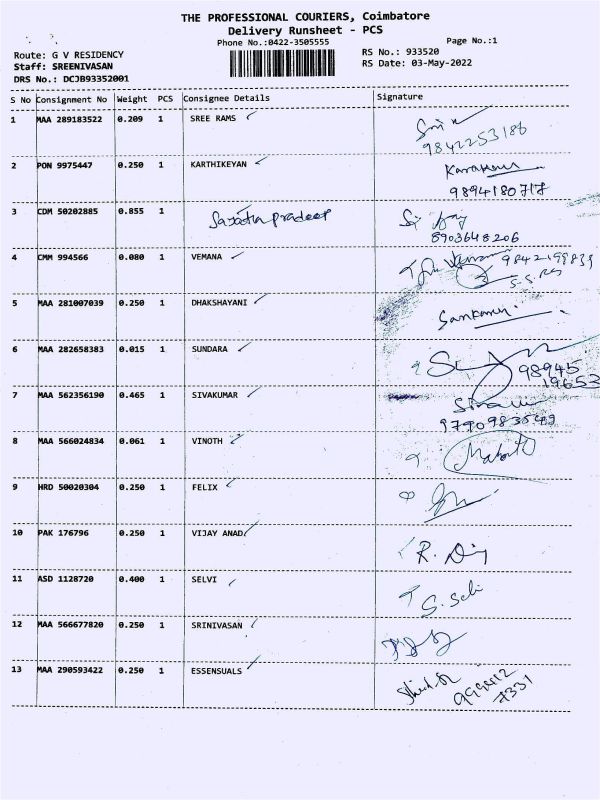 THE PROFESSIONAL COURIERS, Coimbatore
Delivery Runsheet - PCS
Phone No.:0422-3505555 Page No.:1
Route: G V RESIDENCY RS No.: 933520
Staff: SREENIVASAN RS Date: 03-May-2022
DRS No.: DCJB93352001
S No Consignment No Weight PCS Consignee Details Signature
1 MAA 289183522 0.209 1 SREE RAMS
9842253186
2 PON 9975447 0.250 1 KARTHIKEYAN
9894180717
3 CDM 50202885 0.855 1 Sajatha pradeep
8903648206
4 CMM 994566 0.080 1 VEMANA 9842199839
5 MAA 281007039 0.250 1 DHAKSHAYANI
6 MAA 282658383 0.015 1 SUNDARA
98945
19653
7 MAA 562356190 0.465 1 SIVAKUMAR
9790983549
8 MAA 566024834 0.061 1 VINOTH
9 HRD 50020304 0.250 1 FELIX
10 PAK 176796 0.250 1 VIJAY ANAD
11 ASD 1128720 0.400 1 SELVI
12 MAA 566677820 0.250 1 SRINIVASAN
13 MAA 290593422 0.250 1 ESSENSUALS
7331